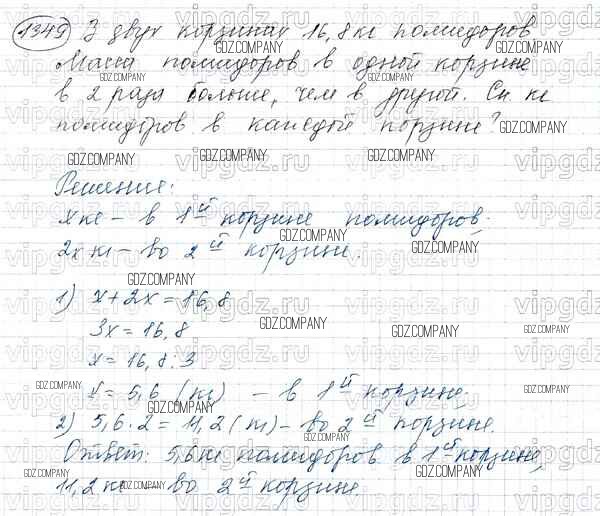 1349 В двух корзинах 16,8 кг помидоров
Масса помидоров в одной корзине
в 2 раза больше, чем в другой. Ск. кг
помидоров в каждой корзине?
Решение:
x кг – в 1ой корзине помидоров.
2x кг – во 2ой корзине.
1) x + 2x = 16,8
3x = 16,8
x = 16,8 : 3
x = 5,6 (кг) – в 1ой корзине.
2) 5,6 · 2 = 11,2 (кг) – во 2ой корзине.
Ответ: 5,6 кг помидоров в 1ой корзине,
11,2 кг – во 2ой корзине.
GDZ.COMPANY
vipgdz.ru